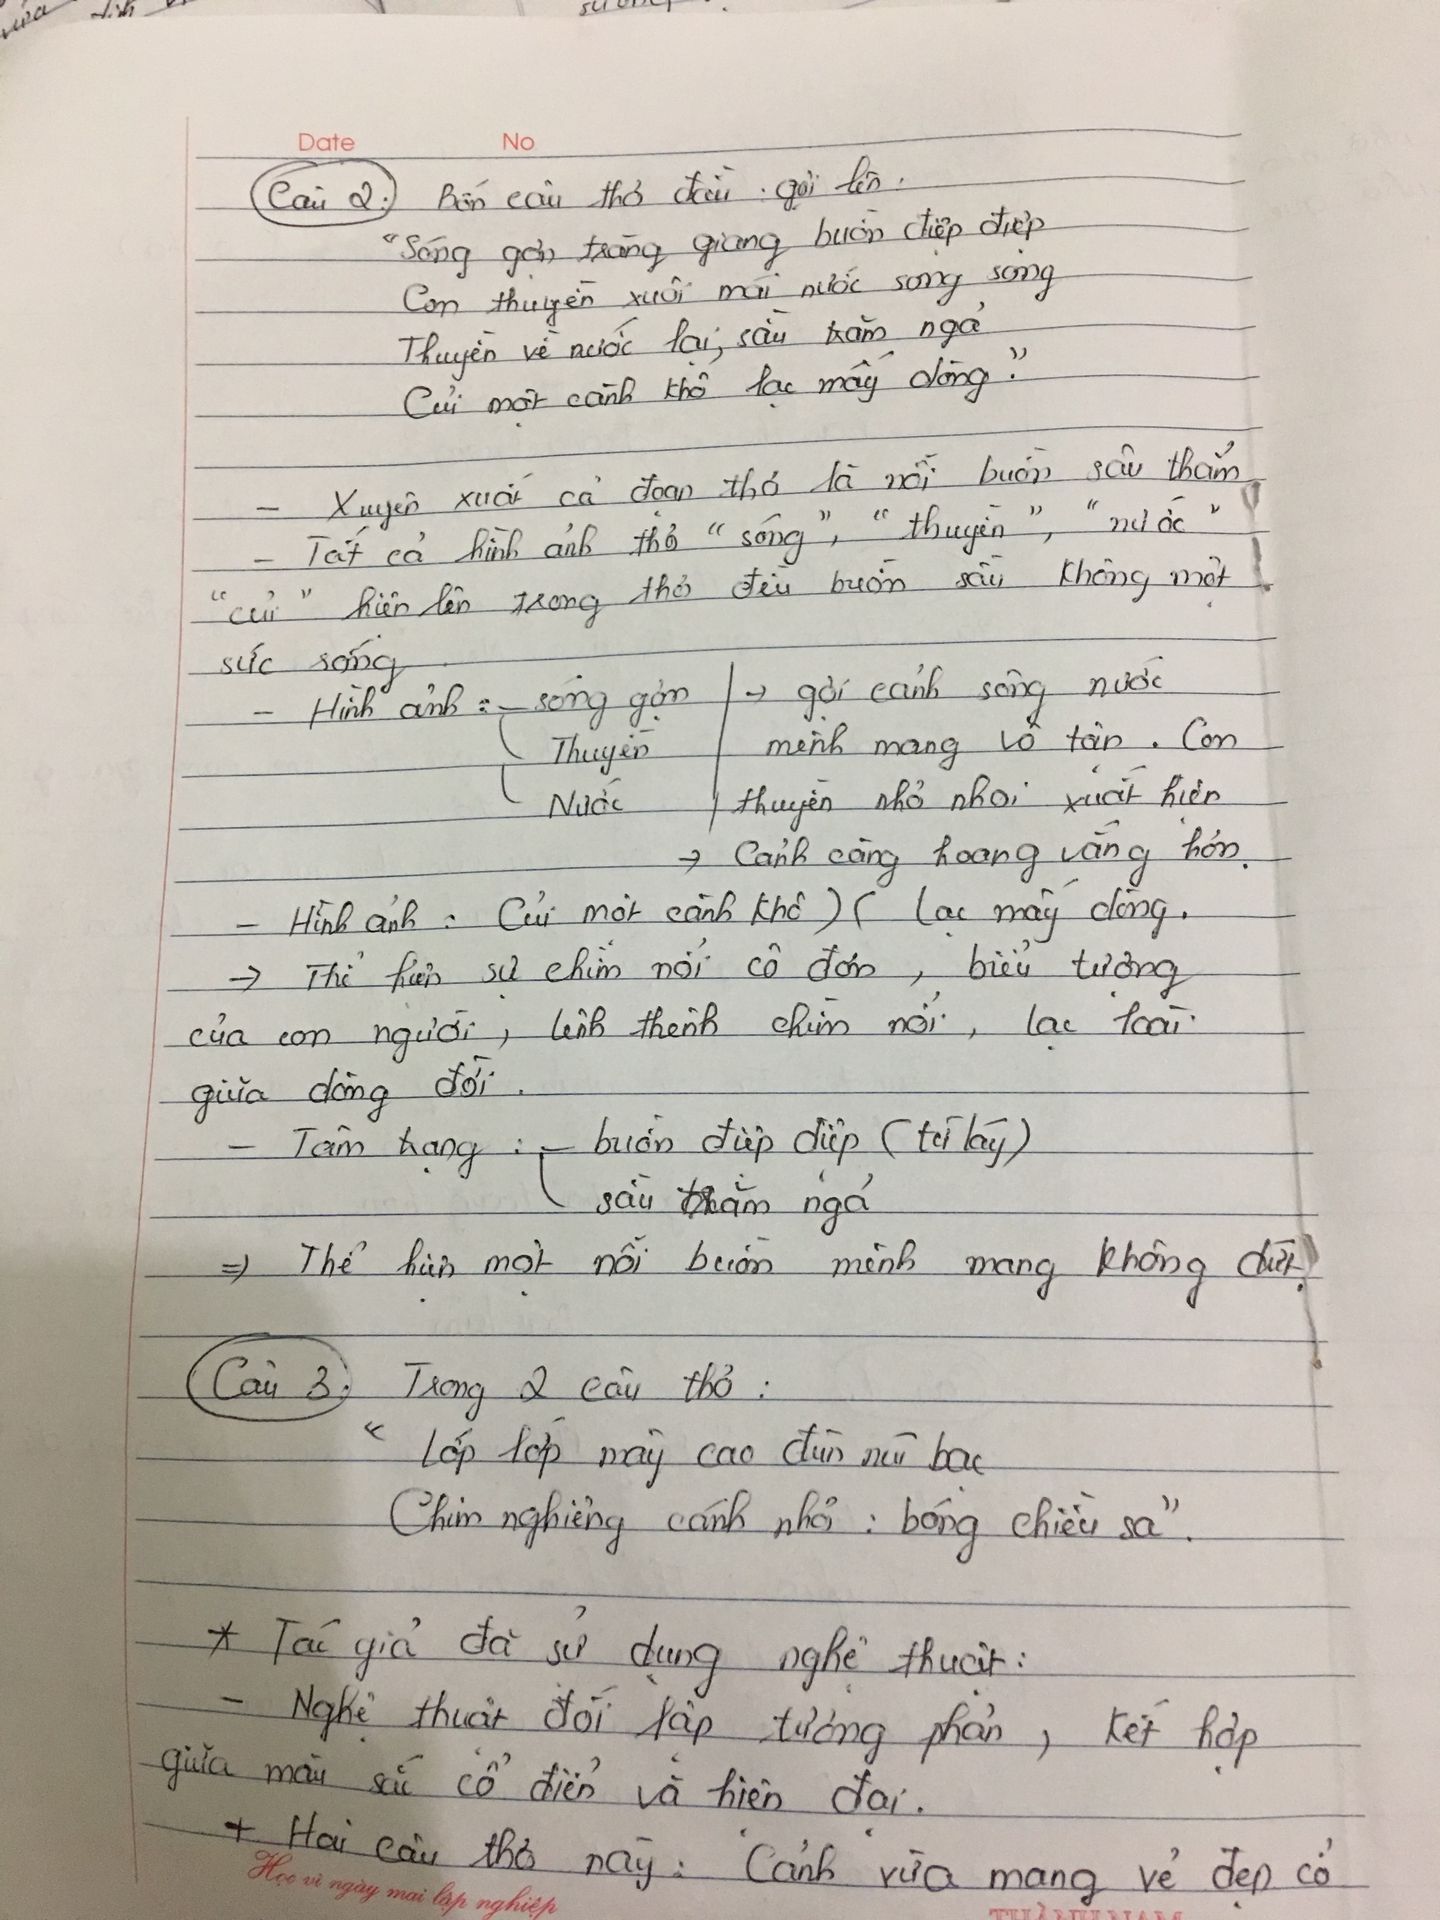 Date No
Câu 2: Bốn câu thơ đầu : gợi lên :
"Sóng gợn tràng giang buồn điệp điệp
Con thuyền xuôi mái nước song song
Thuyền về nước lại, sầu trăm ngả
Củi một cành khô lạc mấy dòng."
- Xuyên xuốt cả đoạn thơ là nỗi buồn sâu thẳm
- Tất cả hình ảnh thơ "sóng", "thuyền", "nước"
"củi" hiện lên trong thơ đều buồn sầu không một
sức sống
- Hình ảnh : - sóng gợn → gợi cảnh sông nước
Thuyền mênh mang vô tận. Con
Nước thuyền nhỏ nhoi xuất hiện
→ Cảnh càng hoang vắng hơn.
- Hình ảnh : Củi một cành khô )( lạc mấy dòng.
→ Thể hiện sự chìm nổi cô đơn, biểu tượng
của con người, lênh thênh chìm nổi, lạc loài
giữa dòng đời.
- Tâm trạng : - buồn điệp điệp (từ láy)
sầu trăm ngả
⇒ Thể hiện một nỗi buồn mênh mang không dứt.
Câu 3: Trong 2 câu thơ :
" Lớp lớp mây cao đùn núi bạc
Chim nghiêng cánh nhỏ : bóng chiều sa".
* Tác giả đã sử dụng nghệ thuật :
- Nghệ thuật đối lập tương phản, kết hợp
giữa màu sắc cổ điển và hiện đại.
+ Hai câu thơ này : Cảnh vừa mang vẻ đẹp cổ
Học vì ngày mai lập nghiệp